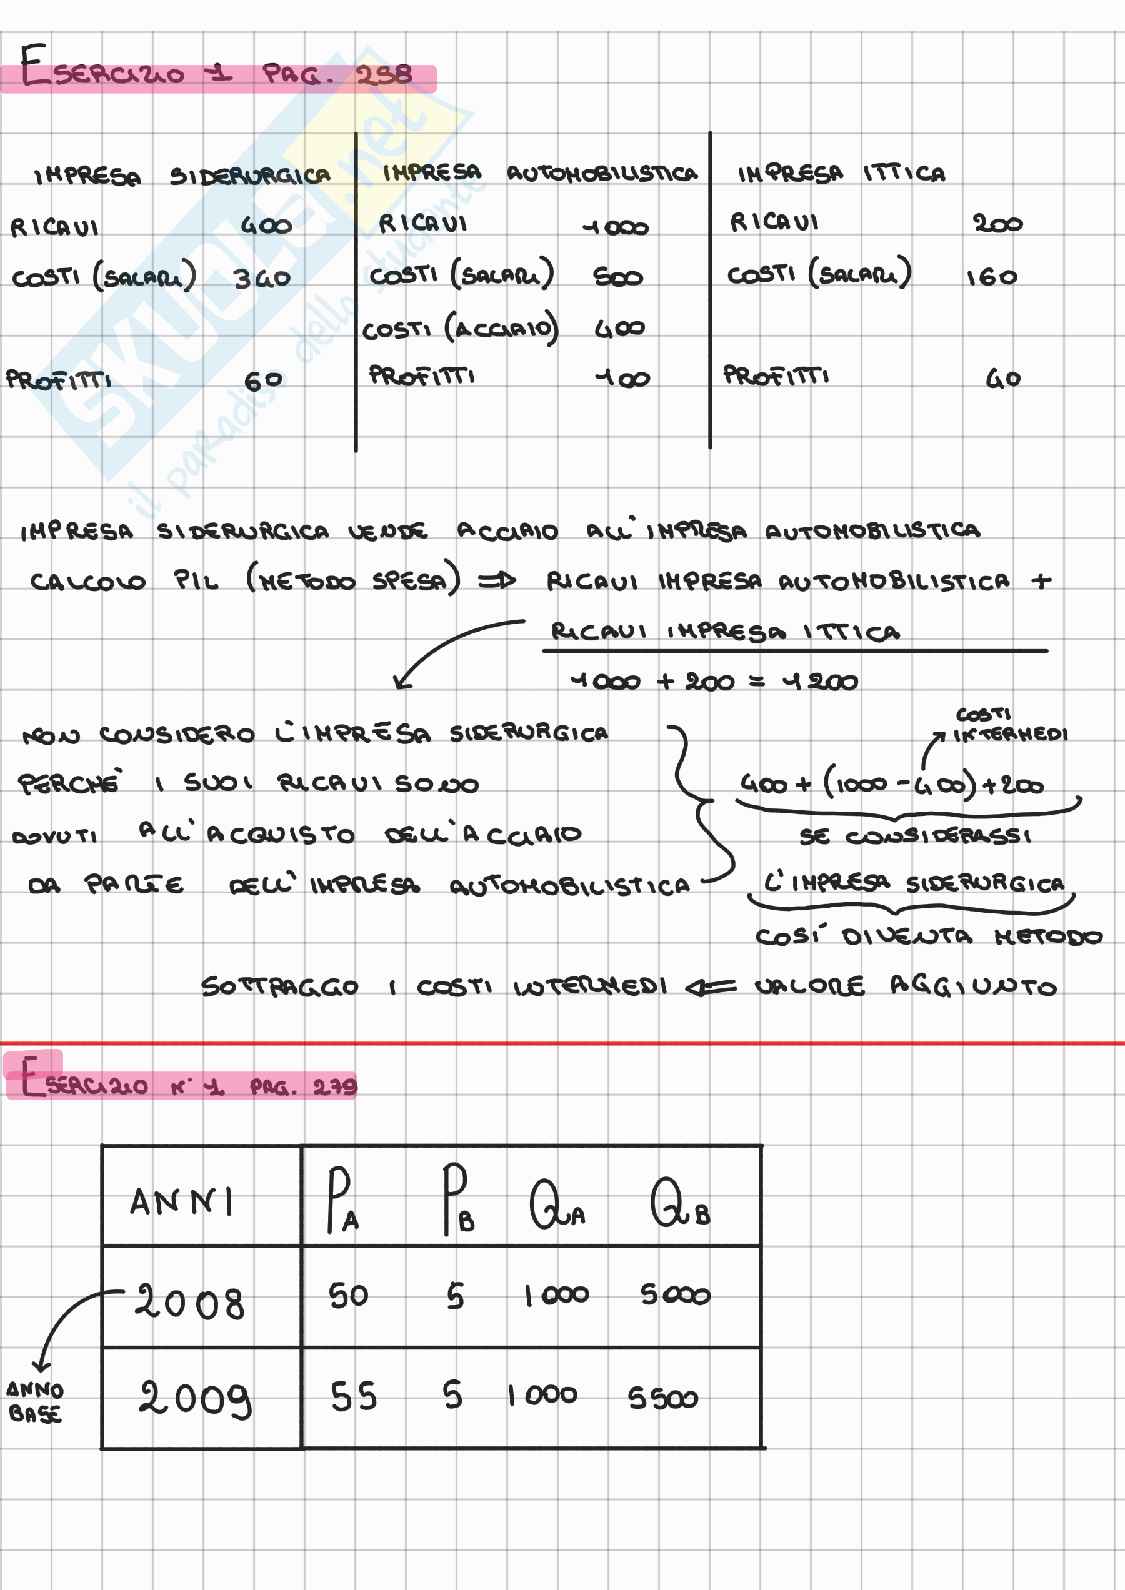 ESERCIZIO 1 PAG. 258
IMPRESA SIDERURGICA IMPRESA AUTOMOBILISTICA IMPRESA ITTICA
RICAVI 400 RICAVI 1000 RICAVI 200
COSTI (SALARI) 340 COSTI (SALARI) 500 COSTI (SALARI) 160
COSTI (ACCIAIO) 400
PROFITTI 60 PROFITTI 100 PROFITTI 40
IMPRESA SIDERURGICA VENDE ACCIAIO ALL'IMPRESA AUTOMOBILISTICA
CALCOLO PIL (METODO SPESA) ⇒ RICAVI IMPRESA AUTOMOBILISTICA +
RICAVI IMPRESA ITTICA
1000 + 200 = 1200
NON CONSIDERO L'IMPRESA SIDERURGICA
PERCHÉ I SUOI RICAVI SONO
DOVUTI ALL'ACQUISTO DELL'ACCIAIO
DA PARTE DELL'IMPRESA AUTOMOBILISTICA
COSTI
INTERMEDI
400 + (1000 - 400) + 200
SE CONSIDERASSI
L'IMPRESA SIDERURGICA
COSÌ DIVENTA METODO
SOTTRAGGO I COSTI INTERMEDI ⇐ VALORE AGGIUNTO
ESERCIZIO N° 1 PAG. 279
ANNI PA PB QA QB
2008 50 5 1000 5000
2009 55 5 1000 5500
ANNO
BASE
SKUOLA.net
il paradiso dello studente